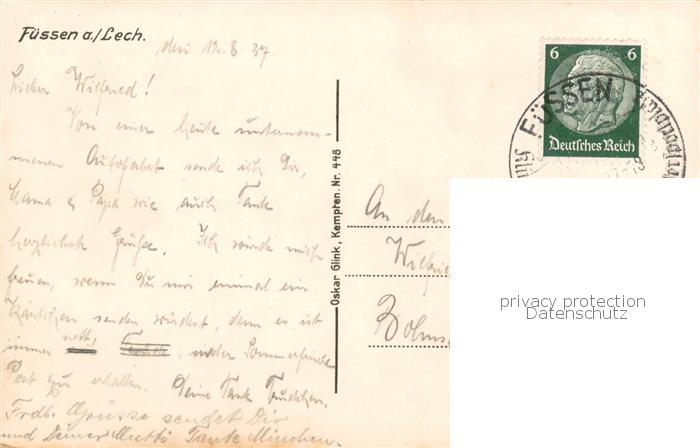 Füssen a./Lech.
den 12. 8. 37.
Lieber Wilfried!
Von einer heute unternom-
menen Autofahrt sende ich Dir,
Mama & Papa wie auch Tante
herzlichste Grüße. Ich würde mich
freuen, wenn Du mir einmal ein
Kärtchen senden würdest, denn es ist
immer nett, in der Sommerfrische
Post zu erhalten. Deine Tante Trudchen.
Frdl. Grüsse sendet Dir
und Deiner Mutti Tante München.
Oskar Glink, Kempten. Nr. 448
6 6
Deutsches Reich
FÜSSEN
An den
Wilfried
privacy protection
Datenschutz